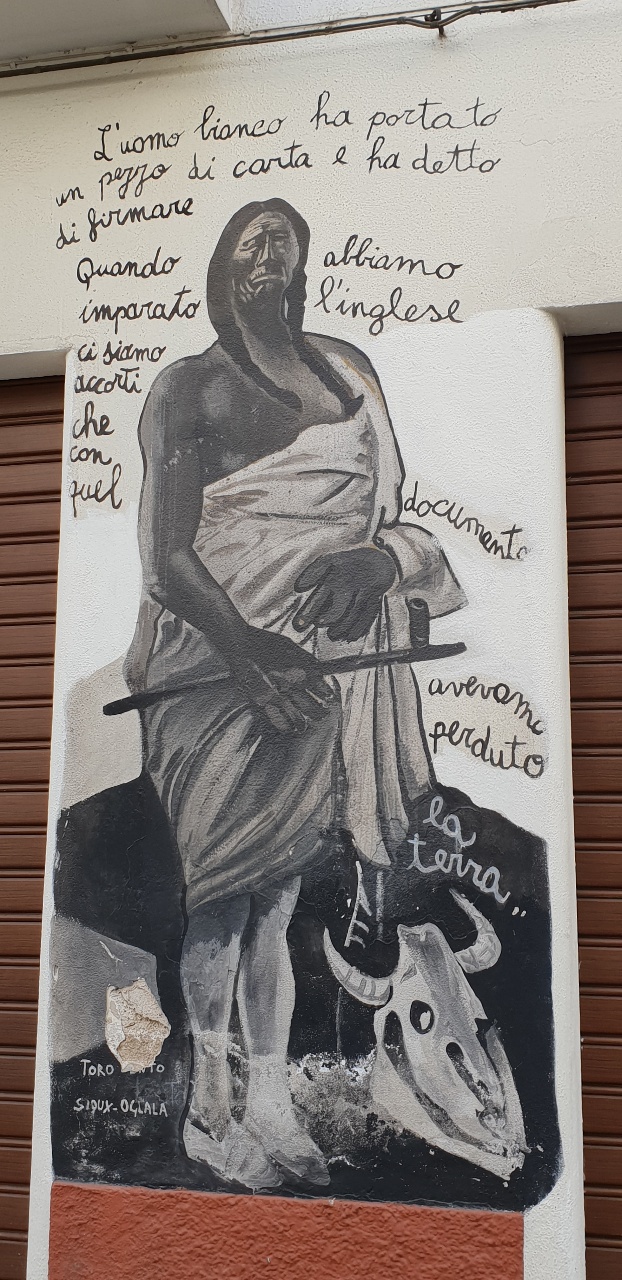 L'uomo bianco ha portato
un pezzo di carta e ha detto
di firmare
Quando abbiamo
imparato l'inglese
ci siamo
accorti
che
con
quel
documento
avevamo
perduto
la
terra"
TORO
SIOUX-OGLALA